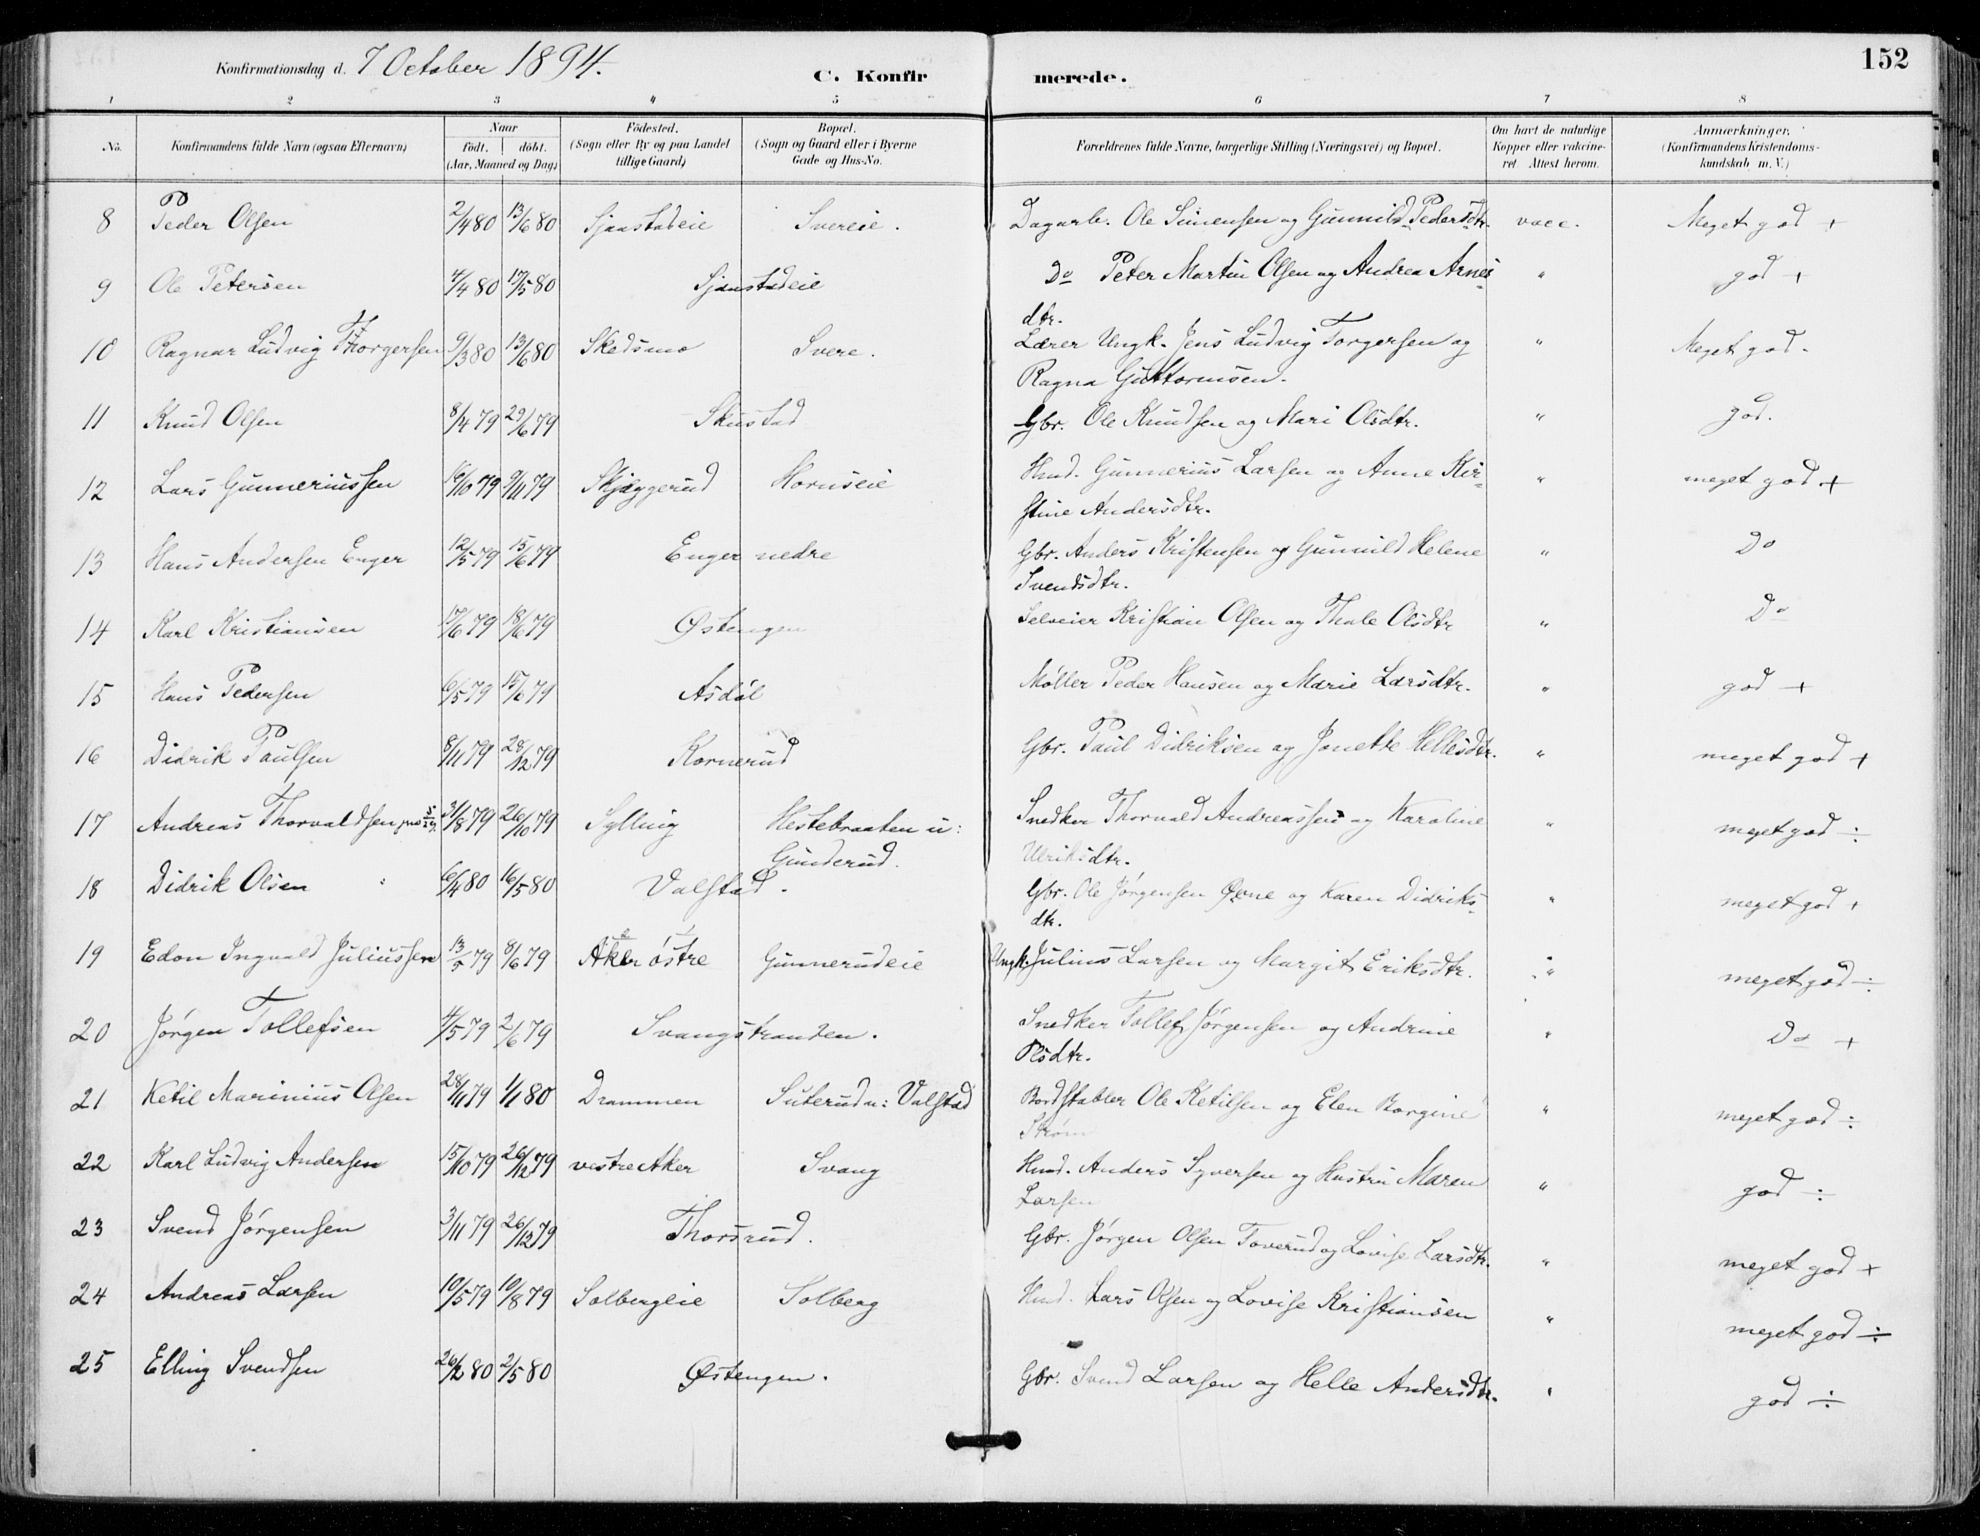 152
Konfirmationsdag d. 7 October 1894.
C. Konfirmerede.
1 2 3 4 5 6 7 8
No. Konfirmandens fulde Navn (ogsaa Efternavn) Naar födt. döbt. (Aar, Maaned og Dag) Födested. (Sogn eller By og paa Landet tillige Gaard) Bopæl. (Sogn og Gaard eller i Byerne Gade og Hus-No. Forældrenes fulde Navne, borgerlige Stilling (Næringsvei) og Bopæl. Om havt de naturlige Kopper eller vakcineret. Attest herom. Anmærkninger. (Konfirmandens Kristendomskundskab m. V.)
8 Peder Olsen 2/4 80 13/6 80 Sjaastadeie Svereie. Dagarb. Ole Simensen og Gunnild Pedersdtr. vacc. Meget god +
9 Ole Petersen 4/4 80 17/5 80 Sjaastadeie Do Peter Martin Olsen og Andrea Arnes-
dtr. " god +
10 Ragnar Ludvig Thorgersen 9/3 80 13/6 80 Skedsmo Svere. Lærer Ungk. Jens Ludvig Torgersen og
Ragna Guttormsen. " Meget god.
11 Knud Olsen 8/4 79 29/6 79 Skustad Gbr. Ole Knudsen og Mari Olsdtr. " god.
12 Lars Gunneriussen 16/10 79 9/11 79 Skjæggerud Hornseie Hmd. Gunnerius Larsen og Anne Kir-
stine Andersdtr. " meget god +
13 Hans Andersen Enger 12/5 79 15/6 79 Enger nedre Gbr. Anders Kristensen og Gunnild Helene
Svendsdtr. " Do
14 Karl Kristiansen 17/6 79 18/6 79 Østengen Selveier Kristian Olsen og Thale Olsdtr " Do
15 Hans Pedersen 6/5 79 15/6 79 Asdøl Møller Peder Hansen og Marie Larsdtr. " god +
16 Didrik Paulsen 8/11 79 28/12 79 Kornerud Gbr. Paul Didriksen og Jonette Hellesdtr. " meget god +
17 Andreas Thorvaldsen 31/8 79 26/10 79 Sylling Hestebraaten u:
Gunderud. Snedker Thorvald Andreassen og Karoline
Ulriksdtr. " meget god ÷
18 Didrik Olsen 6/4 80 16/5 80 Valstad. Gbr. Ole Jørgensen Øvne og Karen Didriks-
dtr. " meget god +
19 Edon Ingvald Juliussen 13/5 79 8/6 79 Aker østre Gunnerudeie Ungk. Julius Larsen og Margit Eriksdtr. " meget god ÷
20 Jørgen Tollefsen 4/5 79 2/6 79 Svangstranden. Snedker Tollef Jørgensen og Andrine
Olsdtr. " Do +
21 Ketil Marinius Olsen 28/11 79 1/1 80 Drammen Suterud u: Valstad Bordstabler Ole Ketilsen og Elen Borgine
Strøm " meget god ÷
22 Karl Ludvig Andersen 15/10 79 26/12 79 vestre Aker Svang Hmd. Anders Syversen og Hustru Maren
Larsen " god ÷
23 Svend Jørgensen 3/11 79 26/12 79 Thorsrud. Gbr. Jørgen Olsen Toverud og Lovise Larsdtr. " meget god +
24 Andreas Larsen 10/5 79 10/8 79 Solbergeie Solberg Hmd. Lars Olsen og Lovise Kristiansen " meget god ÷
25 Elling Svendsen 26/2 80 2/5 80 Østengen. Gbr. Svend Larsen og Helle Andersdtr. " god ÷